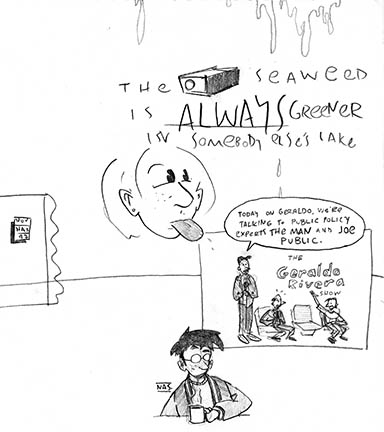 THE SEAWEED
IS ALWAYS GREENER
IN SOMEBODY ELSE'S LAKE
TODAY ON GERALDO, WE'RE
TALKING TO PUBLIC POLICY
EXPERTS THE MAN AND JOE
PUBLIC.
THE
Geraldo
Rivera
SHOW
NOV
NAS
92
NAS